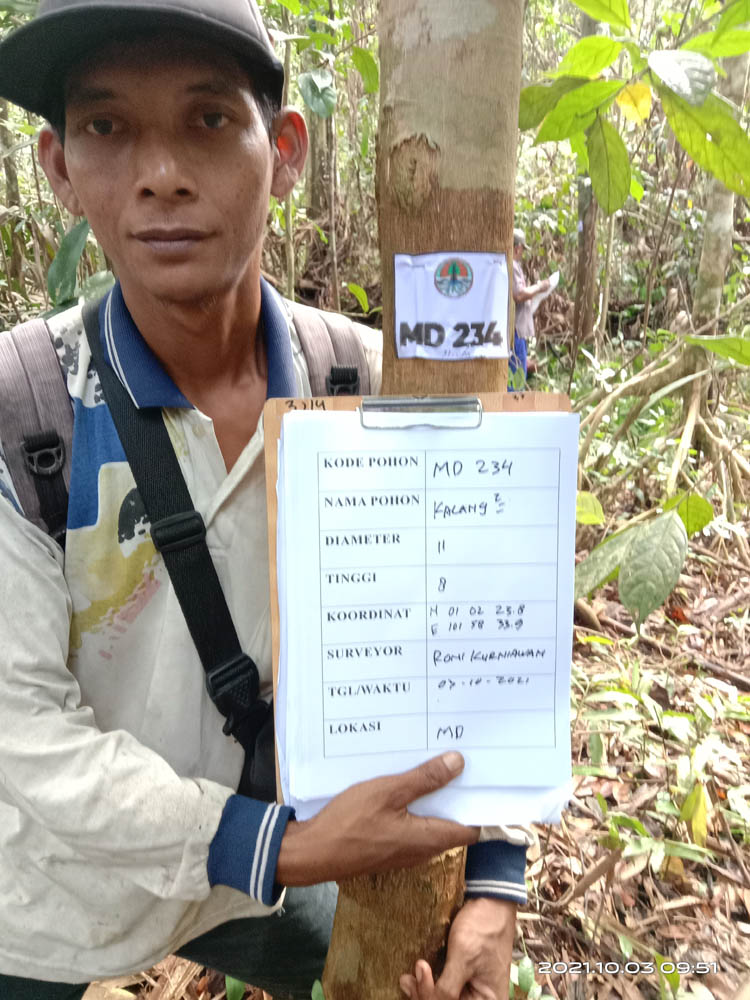 MD 234
KODE POHON MD 234
NAMA POHON KALANG 2
DIAMETER 11
TINGGI 8
KOORDINAT N 01 02 23.8
E 101 58 33.9
SURVEYOR ROMI KURNIAWAN
TGL/WAKTU 03-10-2021
LOKASI MD
2021.10.03 09:51